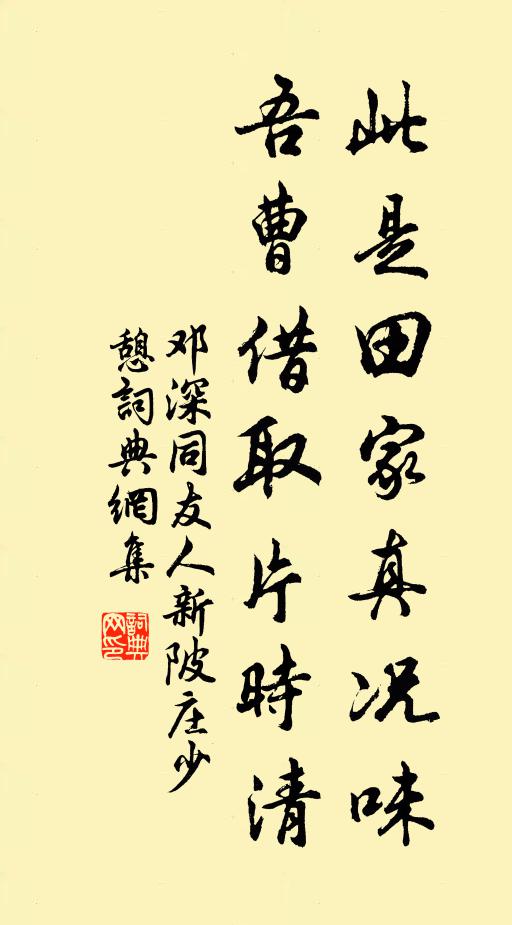 此是田家真况味
吾曹借取片時清
邓深同友人新陂庄少
憩詞典網集
詞典
网印